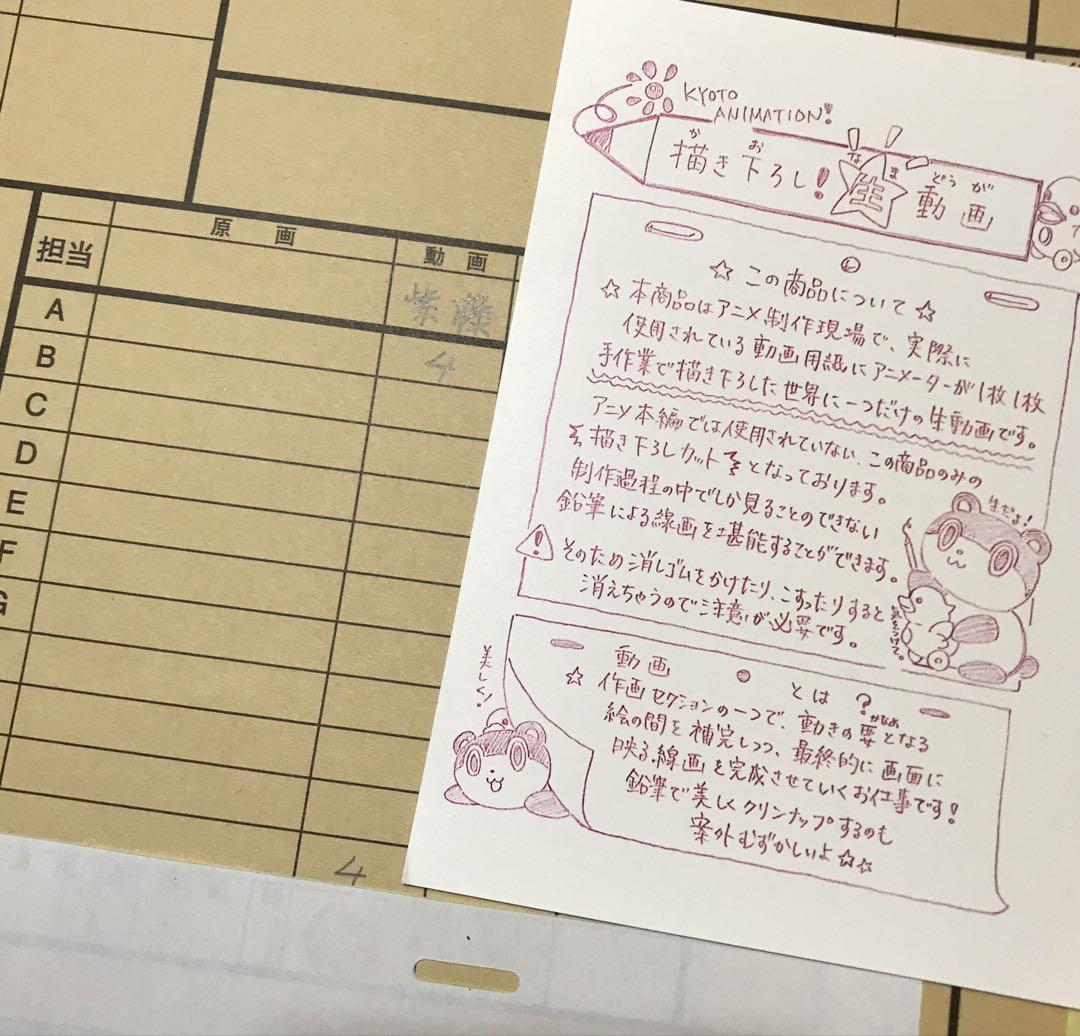 原画
動画
担当
紫藤
A
B
4
C
D
E
F
G
4
KYOTO
ANIMATION!
か お なま どうが
描き下ろし!生動画
☆この商品について☆
☆本商品はアニメ制作現場で、実際に
使用されている動画用紙にアニメーターが1枚1枚
手作業で描き下ろした世界に一つだけの生動画です。
アニメ本編では使用されていない、この商品のみの
描き下ろしカットとなっております。
制作過程の中でしか見ることのできない
鉛筆による線画を堪能することができます。
そのため消しゴムをかけたり、こすったりすると
消えちゃうので注意が必要です。
生だよ!
気をつけて。
美しく!
動画とは?
☆作画セクションの一つで、動きの要となる
かなめ
絵の間を補完しつつ、最終的に画面に
映る線画を完成させていくお仕事です!
鉛筆で美しくクリンナップするのも
案外むずかしいよ☆☆